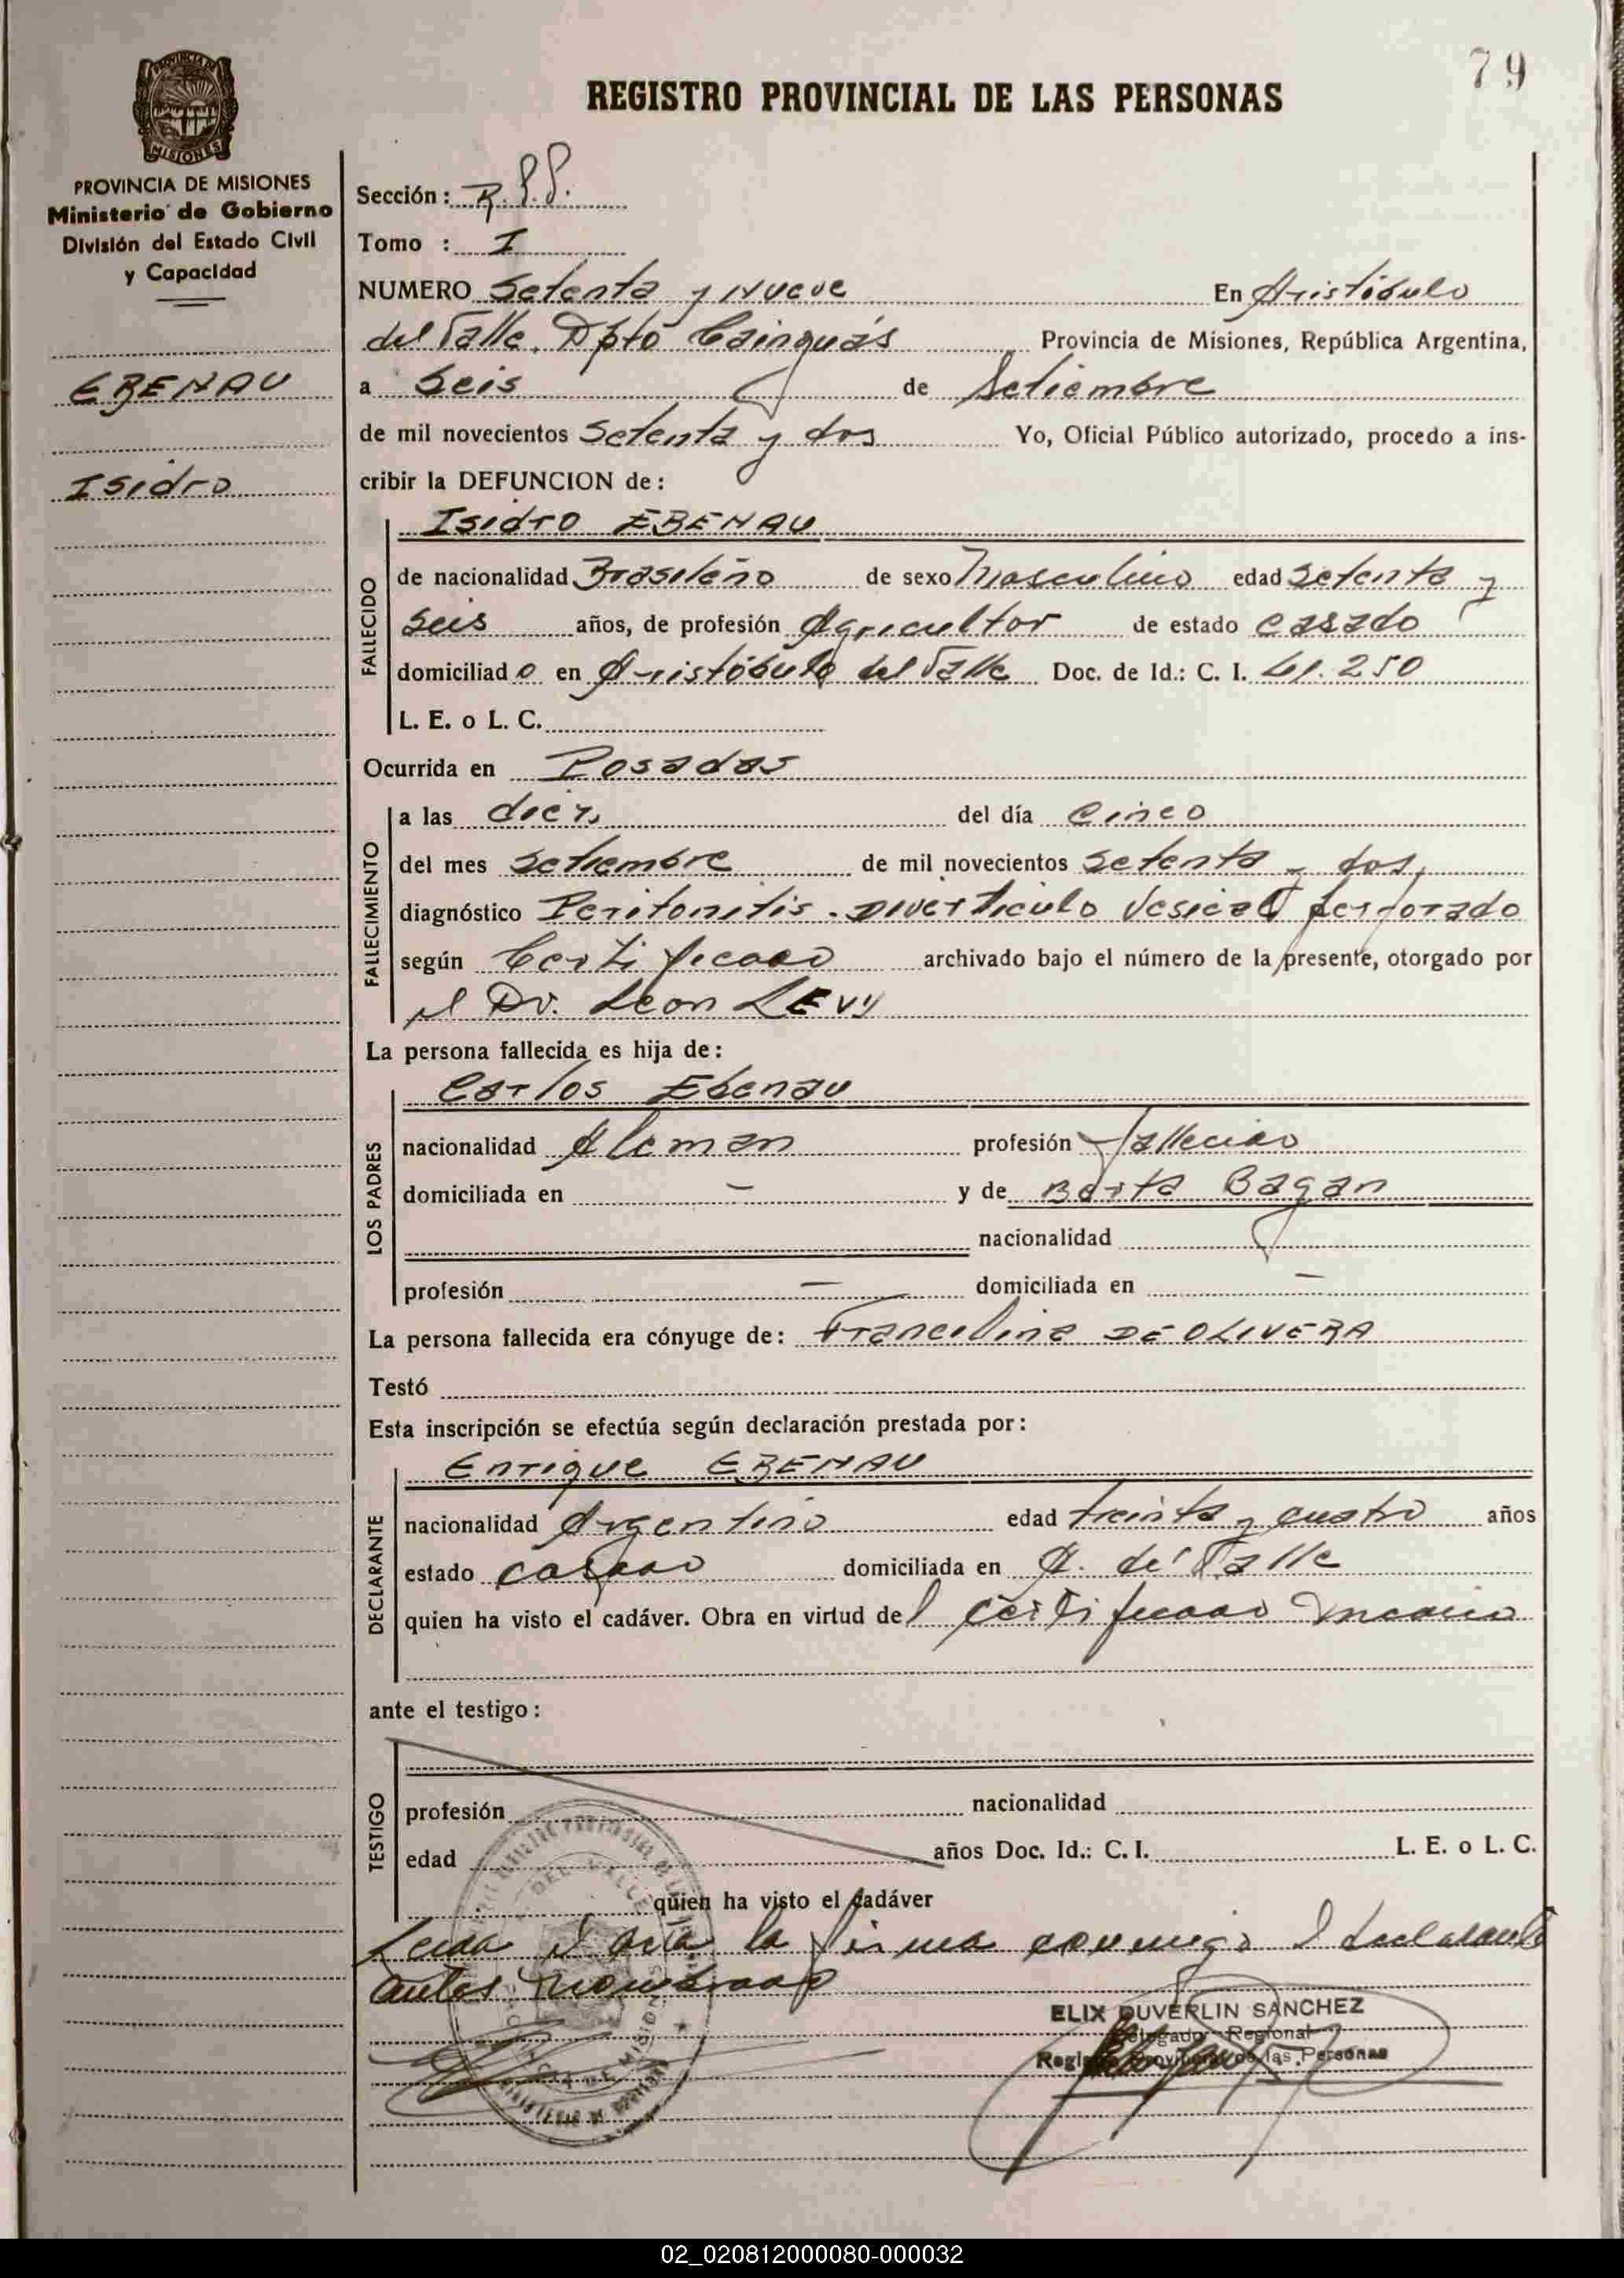 79
REGISTRO PROVINCIAL DE LAS PERSONAS
PROVINCIA DE MISIONES
Ministerio de Gobierno
División del Estado Civil
y Capacidad
EBENAU
Isidro
Sección:
Tomo : I
NUMERO Setenta y Nueve En Aristóbulo
del Valle. Dpto Cainguás Provincia de Misiones, República Argentina,
a Seis de Setiembre
de mil novecientos Setenta y dos Yo, Oficial Público autorizado, procedo a ins-
cribir la DEFUNCION de:
Isidro EBENAU
FALLECIDO
de nacionalidad Brasileño de sexo Masculino edad Setenta y
Seis años, de profesión Agricultor de estado casado
domiciliado en Aristóbulo del Valle Doc. de Id.: C. I. 61.250
L. E. o L. C.
Ocurrida en Posadas
FALLECIMIENTO
a las diez, del día Cinco
del mes Setiembre de mil novecientos Setenta y dos,
diagnóstico Peritonitis - Divertículo Vesical perforado
según Certificado archivado bajo el número de la presente, otorgado por
el Dr. Leon LEVY
La persona fallecida es hija de:
Carlos Ebenau
LOS PADRES
nacionalidad Aleman profesión fallecido
domiciliada en - y de Berta Bagan
nacionalidad
profesión - domiciliada en -
La persona fallecida era cónyuge de: Francelina DE OLIVERA
Testó
Esta inscripción se efectúa según declaración prestada por:
Enrique EBENAU
DECLARANTE
nacionalidad Argentino edad treinta y cuatro años
estado casado domiciliada en A. del Valle
quien ha visto el cadáver. Obra en virtud del certificado
ante el testigo:
TESTIGO
profesión nacionalidad
edad años Doc. Id.: C. I. L. E. o L. C.
quien ha visto el cadáver
Leida el acta la firma conmigo el declarante
antes nombrado
ELIX DUVERLIN SANCHEZ
Delegado Regional
Registro Provincial de las Personas
02_020812000080-000032